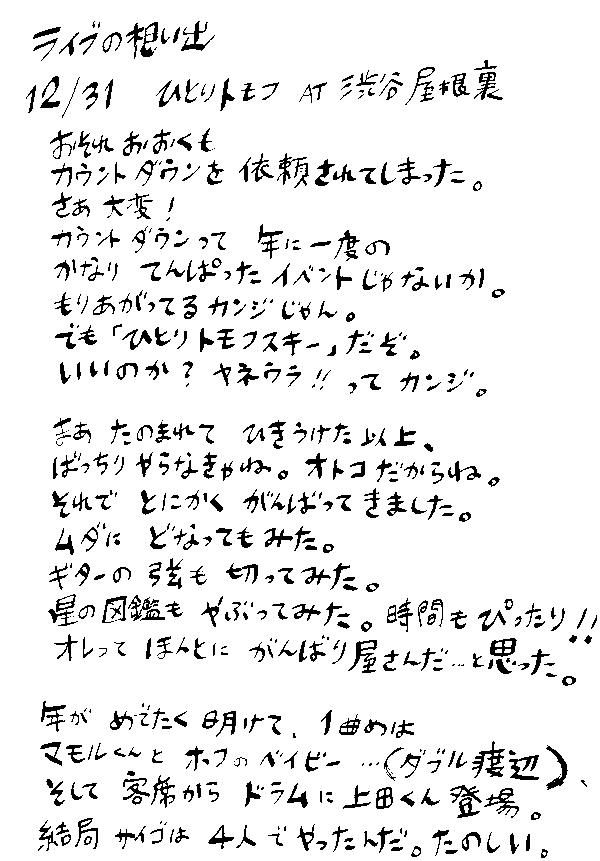 ライブの想い出
12/31 ひとりトモフ AT 渋谷屋根裏
おそれおおくも
カウントダウンを依頼されてしまった。
さあ大変!
カウントダウンって 年に一度の
かなり てんぱったイベントじゃないか。
もりあがってるカンジじゃん。
でも「ひとりトモフスキー」だぞ。
いいのか? ヤネウラ!! って カンジ。
まあ たのまれて ひきうけた以上、
ばっちりやらなきゃね。オトコだからね。
それで とにかく がんばってきました。
ムダに どなってもみた。
ギターの弦も切ってみた。
星の図鑑も やぶってみた。時間もぴったり!!
オレって ほんとに がんばり屋さんだ…と思った。
年が めでたく 明けて、1曲めは
マモルくんと ホフのベイビー …(ダブル渡辺)、
そして 客席から ドラムに上田くん登場。
結局 サイゴは 4人でやったんだ。たのしい。